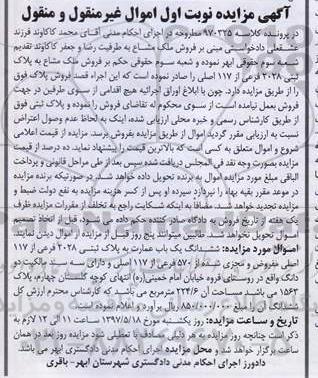 آگهی مزایده نوبت اول اموال غیرمنقول و منقول
در پرونده کلاسه ۹۷۰۳۳۵ مطروحه در اجرای احکام مدنی آقای محمد کاکاوند فرزند
عشقعلی دادخواستی مبنی بر فروش ملک مشاع به طرفیت رضا و جعفر کاکاوند تقدیم
شعبه سوم حقوقی ابهر نموده و شعبه سوم حقوقی حکم بر فروش ملک مشاع به پلاک
ثبتی ۲۰۲۸ فرعی از ۱۱۷ اصلی را صادر نموده است که این اجراء قصد فروش پلاک فوق
را از طریق مزایده دارد. چون با ابلاغ اوراق اجرائیه هیچ اقدامی از سوی طرفین در جهت
فروش بعمل نیامده است از سوی محکوم له تقاضای فروش را نموده و پلاک ثبتی فوق
از طریق کارشناس رسمی و خبره محلی ارزیابی شده، اینک به لحاظ عدم وصول اعتراض
نسبت به ارزیابی مقرر گردید اموال از طریق مزایده بفروش برسد. مزایده از قیمت اعلامی
شروع و اموال متعلق به کسی است که بالاترین قیمت را پیشنهاد نماید. ده درصد از قیمت
مزایده بصورت وجه نقد فی المجلس دریافت شده سپس بعد از طی مراحل قانونی و پرداخت
الباقی مبلغ مورد مزایده اموال به برنده تحویل داده خواهد شد. در صورتیکه برنده مزایده
در موعد مقرر بقیه بهاء را نپردازد سپرده او پس از کسر هزینه مزایده به نفع دولت ضبط و
مزایده تجدید خواهد شد. مضافا به اینکه شکایت راجع به تخلف از مقررات مزایده ظرف
یک هفته از تاریخ فروش به دادگاه صادر کننده حکم داده می شود، قبل از اتخاذ تصمیم
مال تحویل نخواهد شد. طالبین میتوانند پنج روز قبل از مزایده از اموال دیدن نمایند.
اموال مورد مزایده: ششدانگ یک باب عمارت به پلاک ثبتی ۲۰۲۸ فرعی از ۱۱۷
اصلی مفروض و مجزی شده از ۵۷۰ فرعی از ۱۱۷ اصلی و دارای سه سند مالکیت دو
دانگ واقع در روستای قروه خیابان امام خمینی(ره) انتهای کوچه گلستان چهارم، پلاک
۱۵۶۳ می باشد مساحت آن ۲۲۴/۶ مترمربع می باشد که کارشناس محترم ارزش کل
ششدانگ آن را مبلغ ۸۵۰/۰۰۰/۰۰۰ ریال برآورد و اعلام نموده است.
تاریخ و ساعت مزایده: روز یکشنبه مورخ ۱۳۹۷/۵/۱۸ ساعت ۱۱ الی ۱۲ لازم به
ذکر است چنانچه روز مزایده به هر دلیلی مصادف با تعطیلی شود مزایده روز بعد در همان
ساعت برگزار خواهد شد و محل مزایده اجرای احکام مدنی دادگستری ابهر می باشد.
دادورز اجرای احکام مدنی دادگستری شهرستان ابهر- باقری